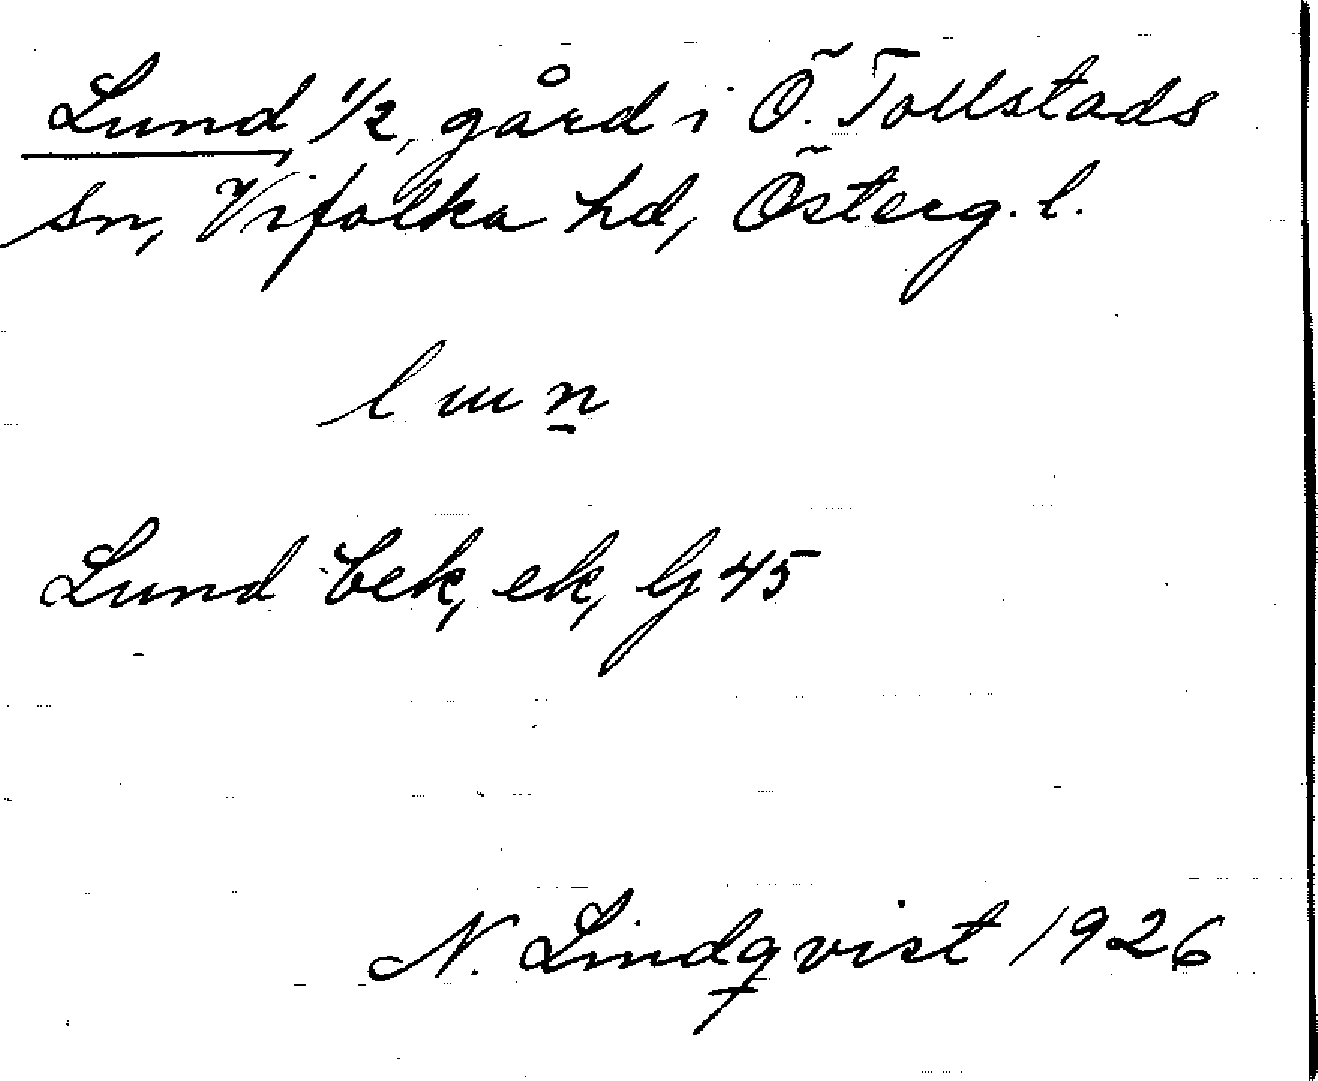 Lund, 1/2, gård i Ö. Tollstads
sn, Vifolka hd, Österg. l.
lɯn̲
Lund bek, ek, G 45
N. Lindqvist 1926